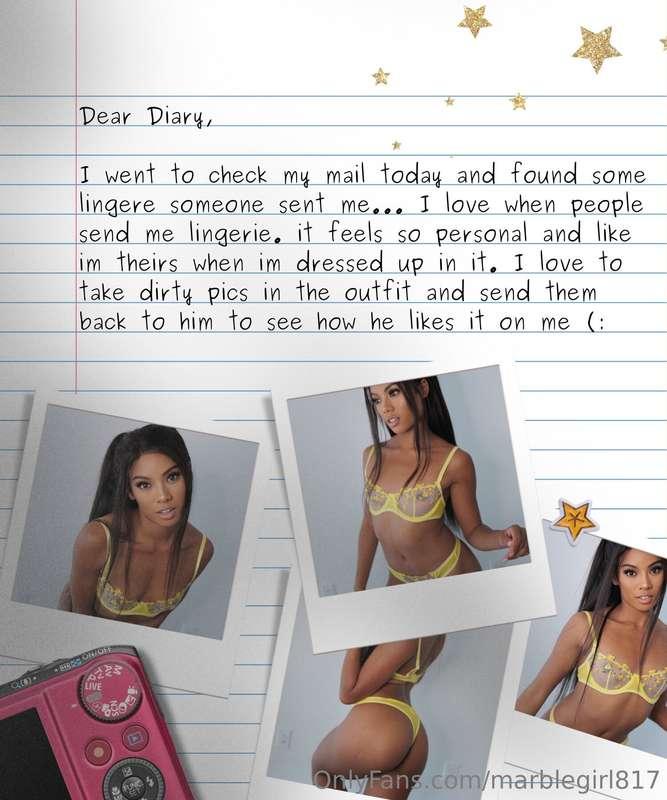 Dear Diary,
I went to check my mail today and found some
lingere someone sent me... I love when people
send me lingerie. it feels so personal and like
im theirs when im dressed up in it. I love to
take dirty pics in the outfit and send them
back to him to see how he likes it on me (:
ON/OFF
LIVE
FUNC.
SET
OnlyFans.com/marblegirl817